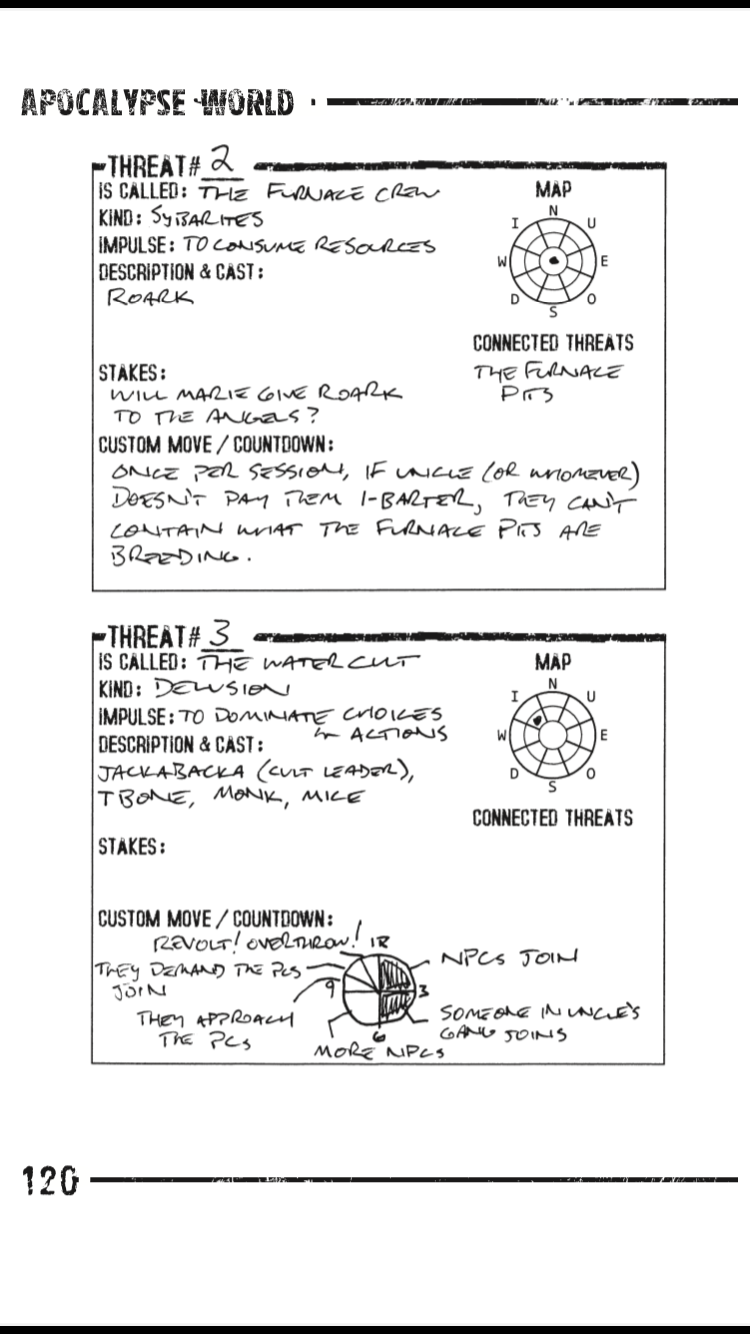 APOCALYPSE WORLD
THREAT# 2
IS CALLED: THE FURNACE CREW
KIND: SYBARITES
IMPULSE: TO CONSUME RESOURCES
DESCRIPTION & CAST:
ROARK
MAP
N
I U
W E
D O
S
CONNECTED THREATS
THE FURNACE
PITS
STAKES:
WILL MARIE GIVE ROARK
TO THE ANGELS?
CUSTOM MOVE / COUNTDOWN:
ONCE PER SESSION, IF UNCLE (OR WHOMEVER)
DOESN'T PAY THEM 1-BARTER, THEY CAN'T
CONTAIN WHAT THE FURNACE PITS ARE
BREEDING.
THREAT# 3
IS CALLED: THE WATER CULT
KIND: DELUSION
IMPULSE: TO DOMINATE CHOICES
& ACTIONS
DESCRIPTION & CAST:
JACKABACKA (CULT LEADER),
TBONE, MONK, MICE
MAP
N
I U
W E
D O
S
CONNECTED THREATS
STAKES:
CUSTOM MOVE / COUNTDOWN:
REVOLT! OVERTHROW!
12
NPCS JOIN
THEY DEMAND THE PCS
JOIN
9
3
THEY APPROACH
THE PCS
6
SOMEONE IN UNCLE'S
GANG JOINS
MORE NPCS
120